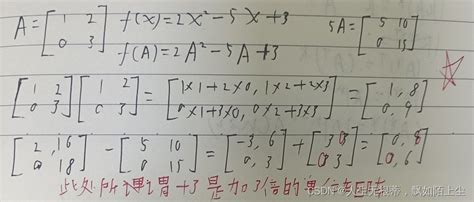 A=[1 2 0 3] f(x)=2x²-5x+3 5A=[5 10 0 15]
f(A)=2A²-5A+3
[1 2 0 3][1 2 0 3]=[1×1+2×0, 1×2+2×3 0×1+3×0, 0×2+3×3]=[1, 8 0, 9]
[2, 16 0 18]-[5 10 0 15]=[-3, 6 0, 3]+[3 0 0 3]=[0, 6 0, 6]
此处所谓 +3 是加3倍的单位
CSDN
飘如陌上尘